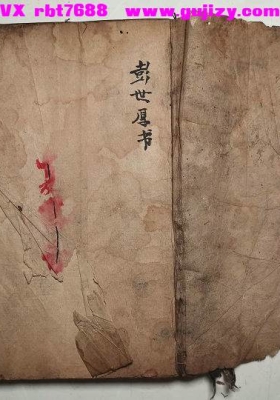 VX rbt7688  www.gujizy.com
彭世厚书